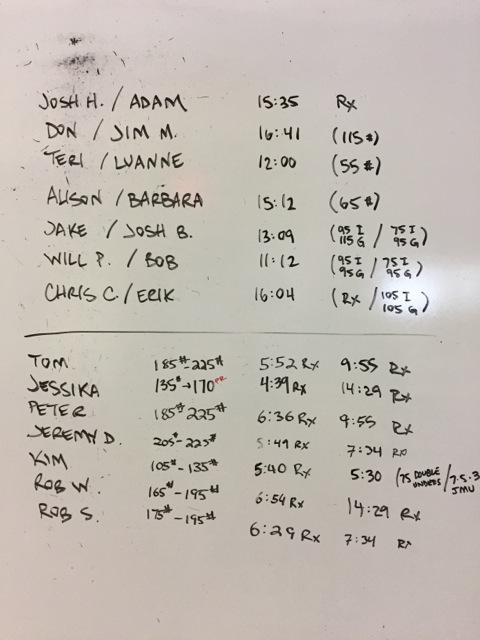 JOSH H. / ADAM 15:35 Rx
DON / JIM M. 16:41 (115#)
TERI / LUANNE 12:00 (55#)
ALISON / BARBARA 15:12 (65#)
JAKE / JOSH B. 13:09 (95 I 115 G / 75 I 95 G)
WILL P. / BOB 11:12 (95 I 95 G / 75 I 95 G)
CHRIS C. / ERIK 16:04 (Rx / 105 I 105 G)
TOM 185#-225# 5:52 Rx 9:55 Rx
JESSIKA 135#→170 PR 4:39 Rx 14:29 Rx
PETER 185#-225# 6:36 Rx 9:55 Rx
JEREMY D. 205#-225# 5:49 Rx 7:34 Rx
KIM 105#-135# 5:40 Rx 5:30 (75 DOUBLE UNDERS / JMU
ROB W. 165#-195# 6:54 Rx 14:29 Rx
ROB S. 175#-195# 6:29 Rx 7:34 Rx